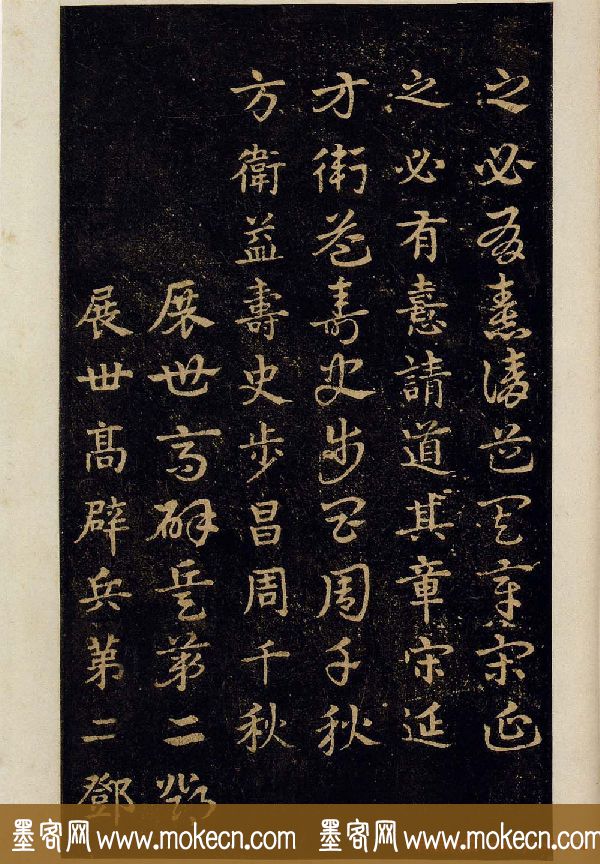 之必有憙請道其章宋延
之必有憙請道其章宋延
方衛益壽史步昌周千秋
方衛益壽史步昌周千秋
展世高辟兵第二鄧
展世髙辟兵第二鄧
墨客网www.mokecn.com 墨客网www.mokecn.com